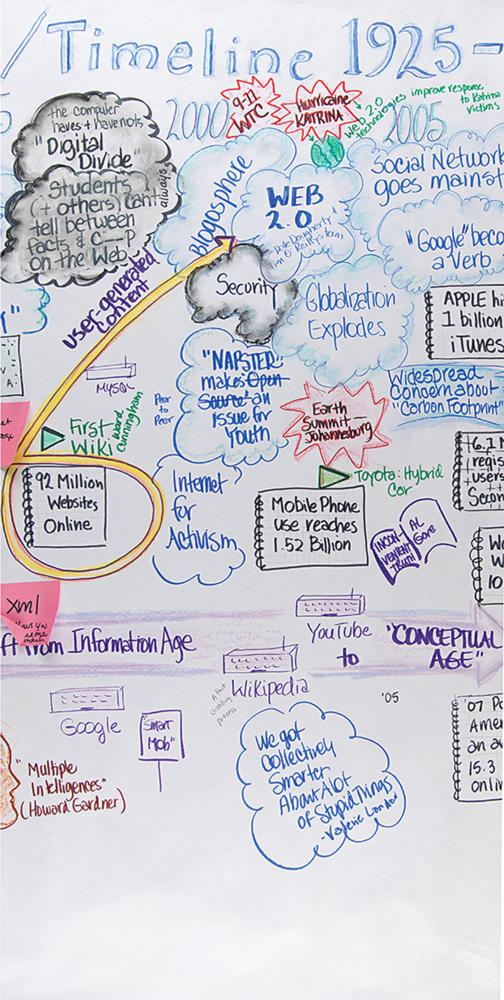 /Timeline 1925-
5
2000
2005
the computer
haves + havenots
"Digital
Divide"
Students
(+ others) can't
always
tell between
facts & C---P
on the Web.
9-11
WTC
Hurricane
KATRINA
Web 2.0
technologies
improve response
to Katrina
Victims
Blogosphere
WEB
2.0
Social Network
goes mainst
"Google" beco
a verb
user-generated
content
Security
Globalization
Explodes
APPLE hi
1 billion
iTunes
MySQL
"NAPSTER"
makes Open
Source an
Issue for
Youth
Peer
to
Peer
Widespread
Concern about
"Carbon Footprint"
First
Wiki
Ward
Cunningham
Earth
Summit-
Johannesburg
92 Million
Websites
Online
Internet
for
Activism
Toyota: Hybrid
Car
Mobile Phone
use reaches
1.52 Billion
INCON-
VENIENT
TRUTH
AL
Gore
regis
users
Secon
10
xml
ft from Information Age
YouTube
to
"CONCEPTUAL
AGE"
Wikipedia
process
'05
Google
"Smart
Mob"
"Multiple
Intelligences"
(Howard Gardner)
We got
Collectively
Smarter
About A lot
of Stupid Things
'07 Po
Amer
an av
15.3
onlin